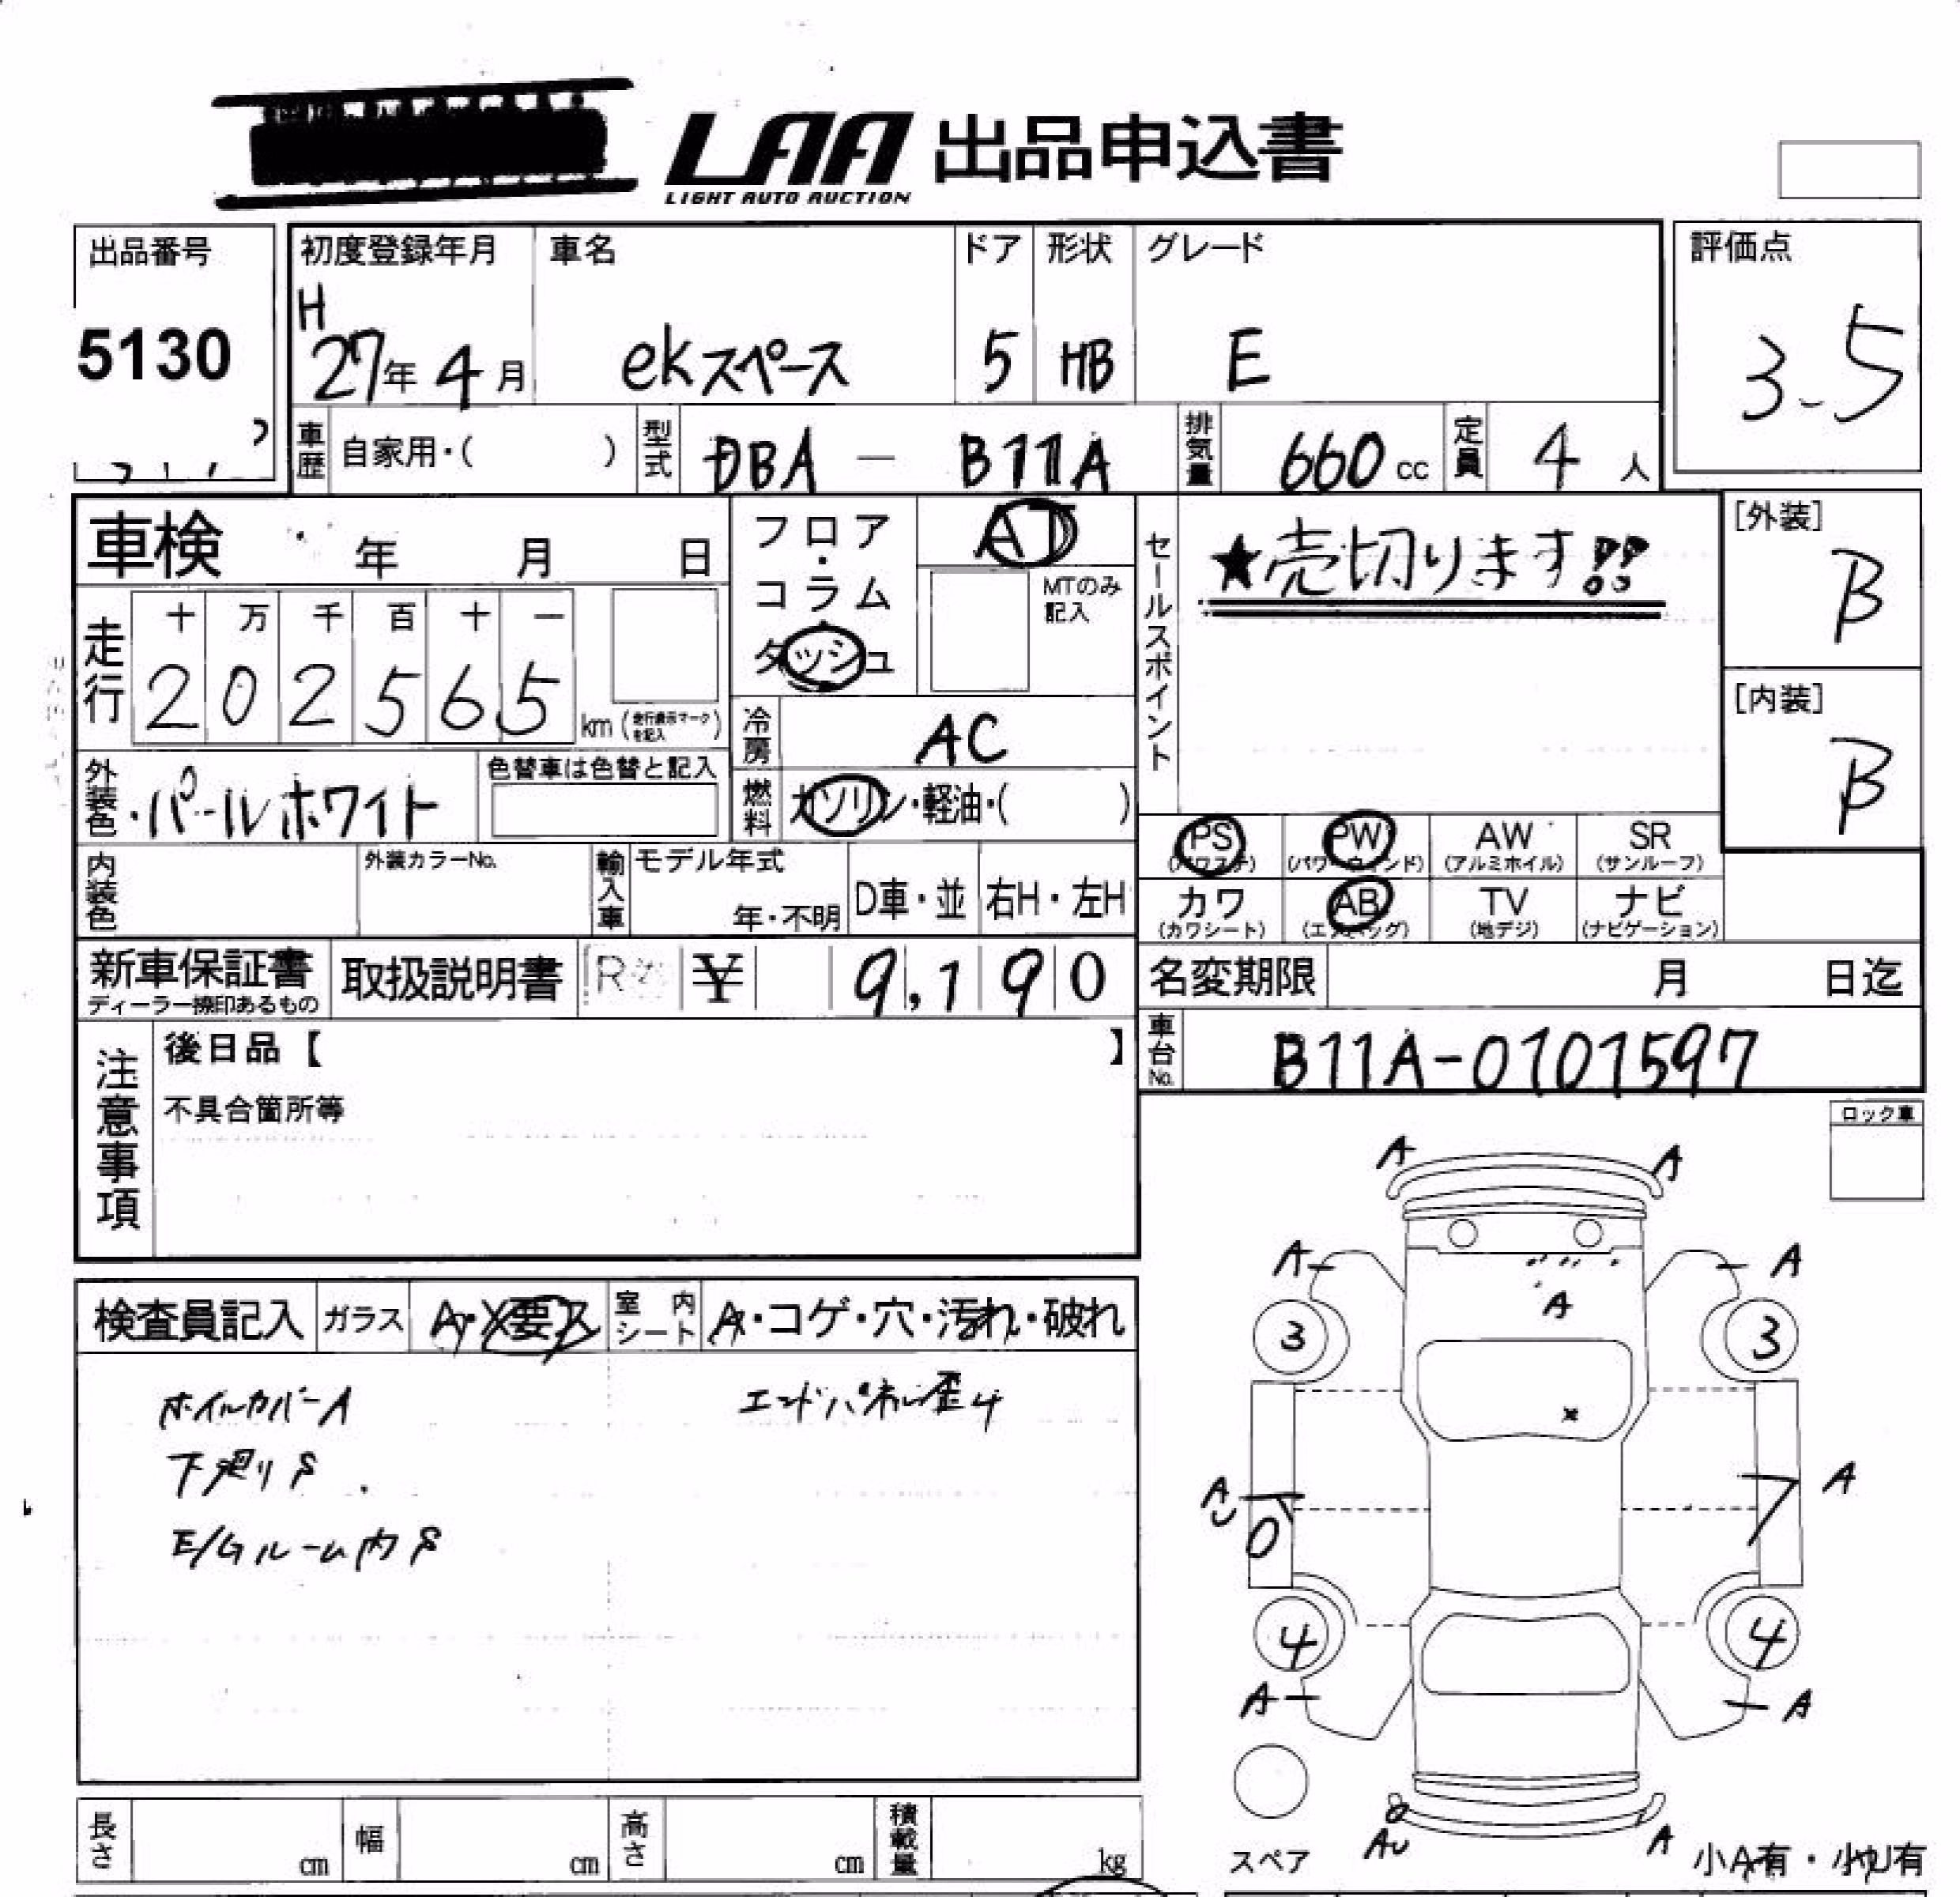 LAA 出品申込書
LIGHT AUTO AUCTION
出品番号 初度登録年月 車名 ドア 形状 グレード 評価点
5130 H 27年 4月 ekスペース 5 HB E 3.5
車歴 自家用・( ) 型式 DBA — B11A 排気量 660 cc 定員 4 人
車検 年 月 日 フロア・コラム ダッシュ AT MTのみ記入 セールスポイント ★売切ります!! [外装] B
走行 十 万 千 百 十 一
2 0 2 5 6 5 km (走行表示マークを記入) 冷房 AC [内装] B
外装色 ・パールホワイト 色替車は色替と記入 燃料 ガソリン・軽油・( )
PS (パワステ) PW (パワーウィンド) AW (アルミホイル) SR (サンルーフ)
内装色 外装カラーNo. 輸入車 モデル年式 年・不明 D車・並 右H・左H
カワ (カワシート) AB (エアバッグ) TV (地デジ) ナビ (ナビゲーション)
新車保証書 ディーラー捺印あるもの 取扱説明書 R ¥ 9,190 名変期限 月 日迄
車台No. B11A-0101597
注意事項 後日品【 】
不具合箇所等
ロック車
検査員記入 ガラス A・X要ス 室内シート A・コゲ・穴・汚れ・破れ
ホイルカバーA エンドパネル歪み
下廻りS
E/Gルーム内S
A A
A A
A
3 3
A U A
4 4
A A
AU A
スペア 小A有・小U有
長さ cm 幅 cm 高さ cm 積載量 kg